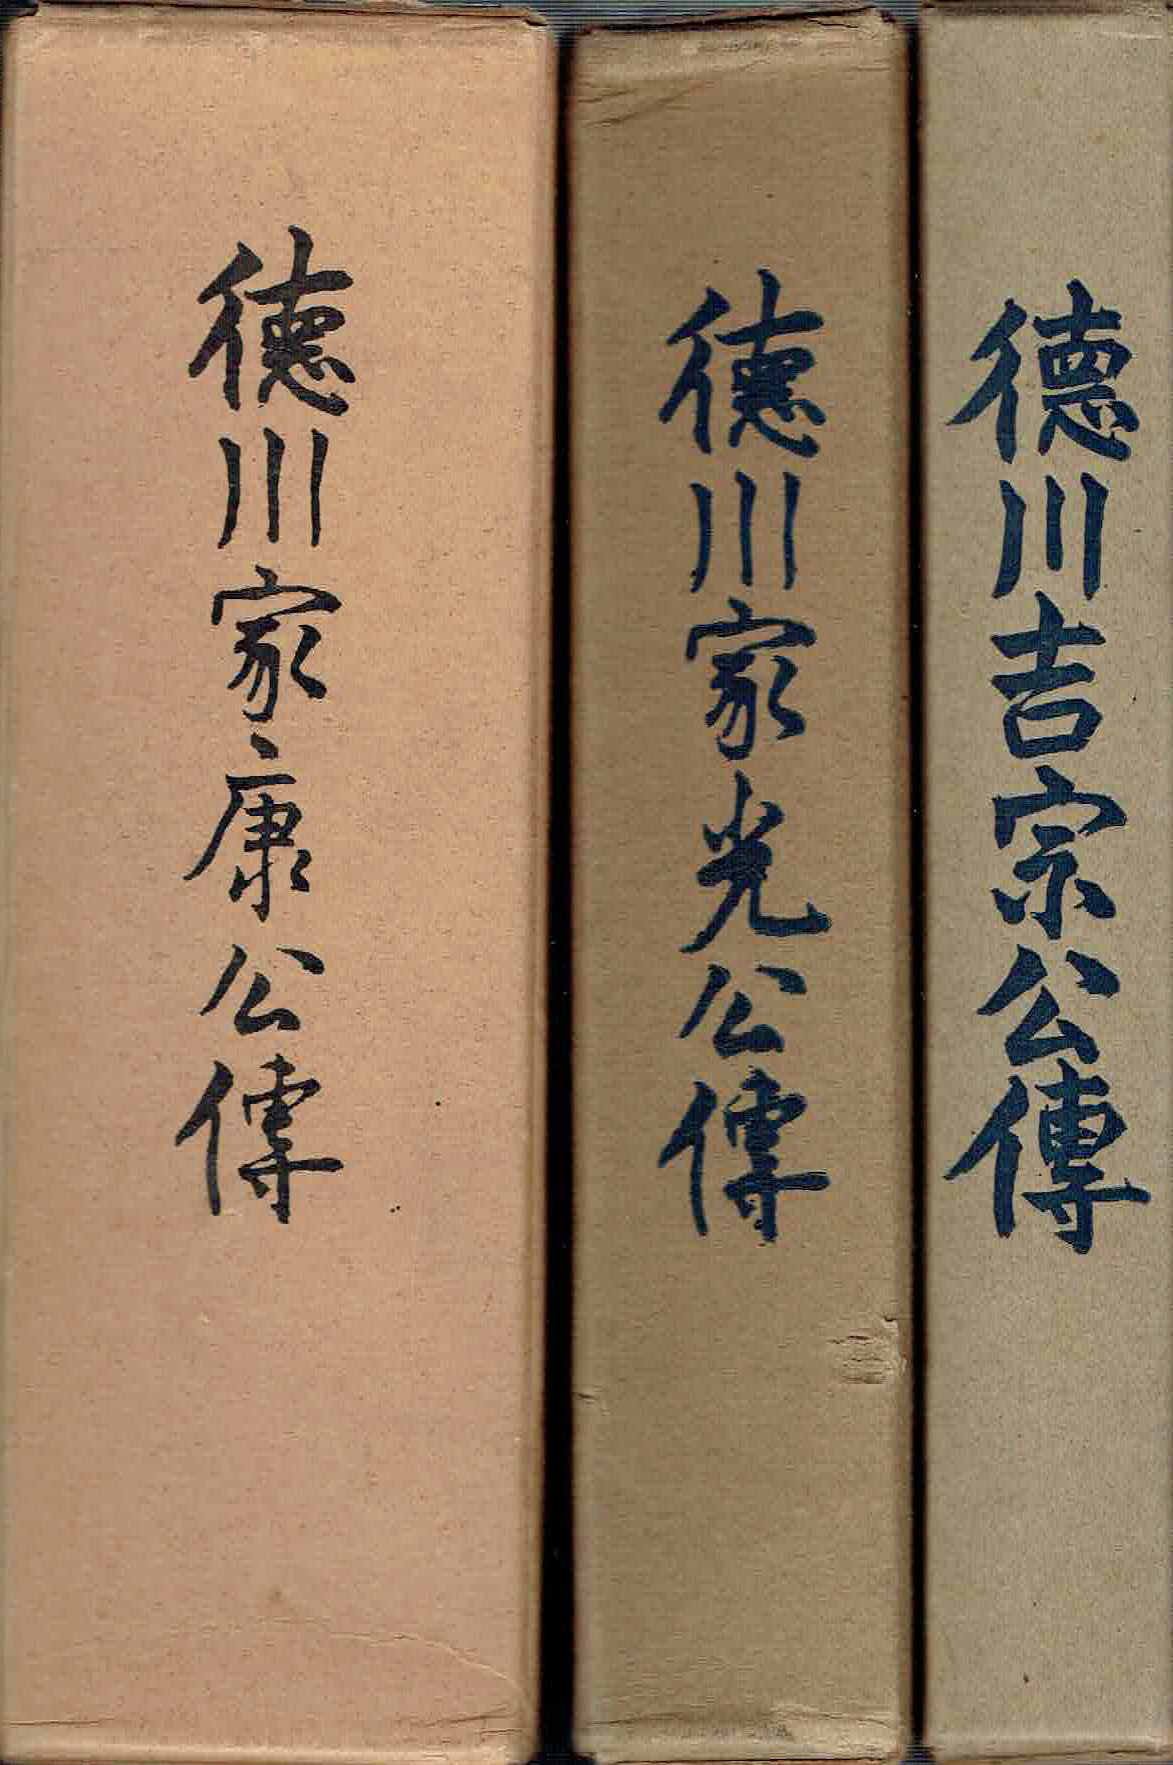 徳川家康公傳
徳川家光公傳
徳川吉宗公傳